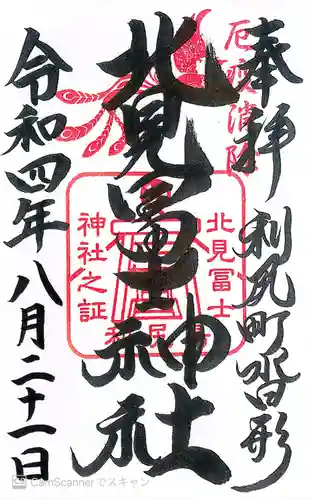 奉拝
利尻町沓形
厄疫消除
北見冨士神社
北見冨士
神社之証
令和四年八月二十一日
CamScanner でスキャン